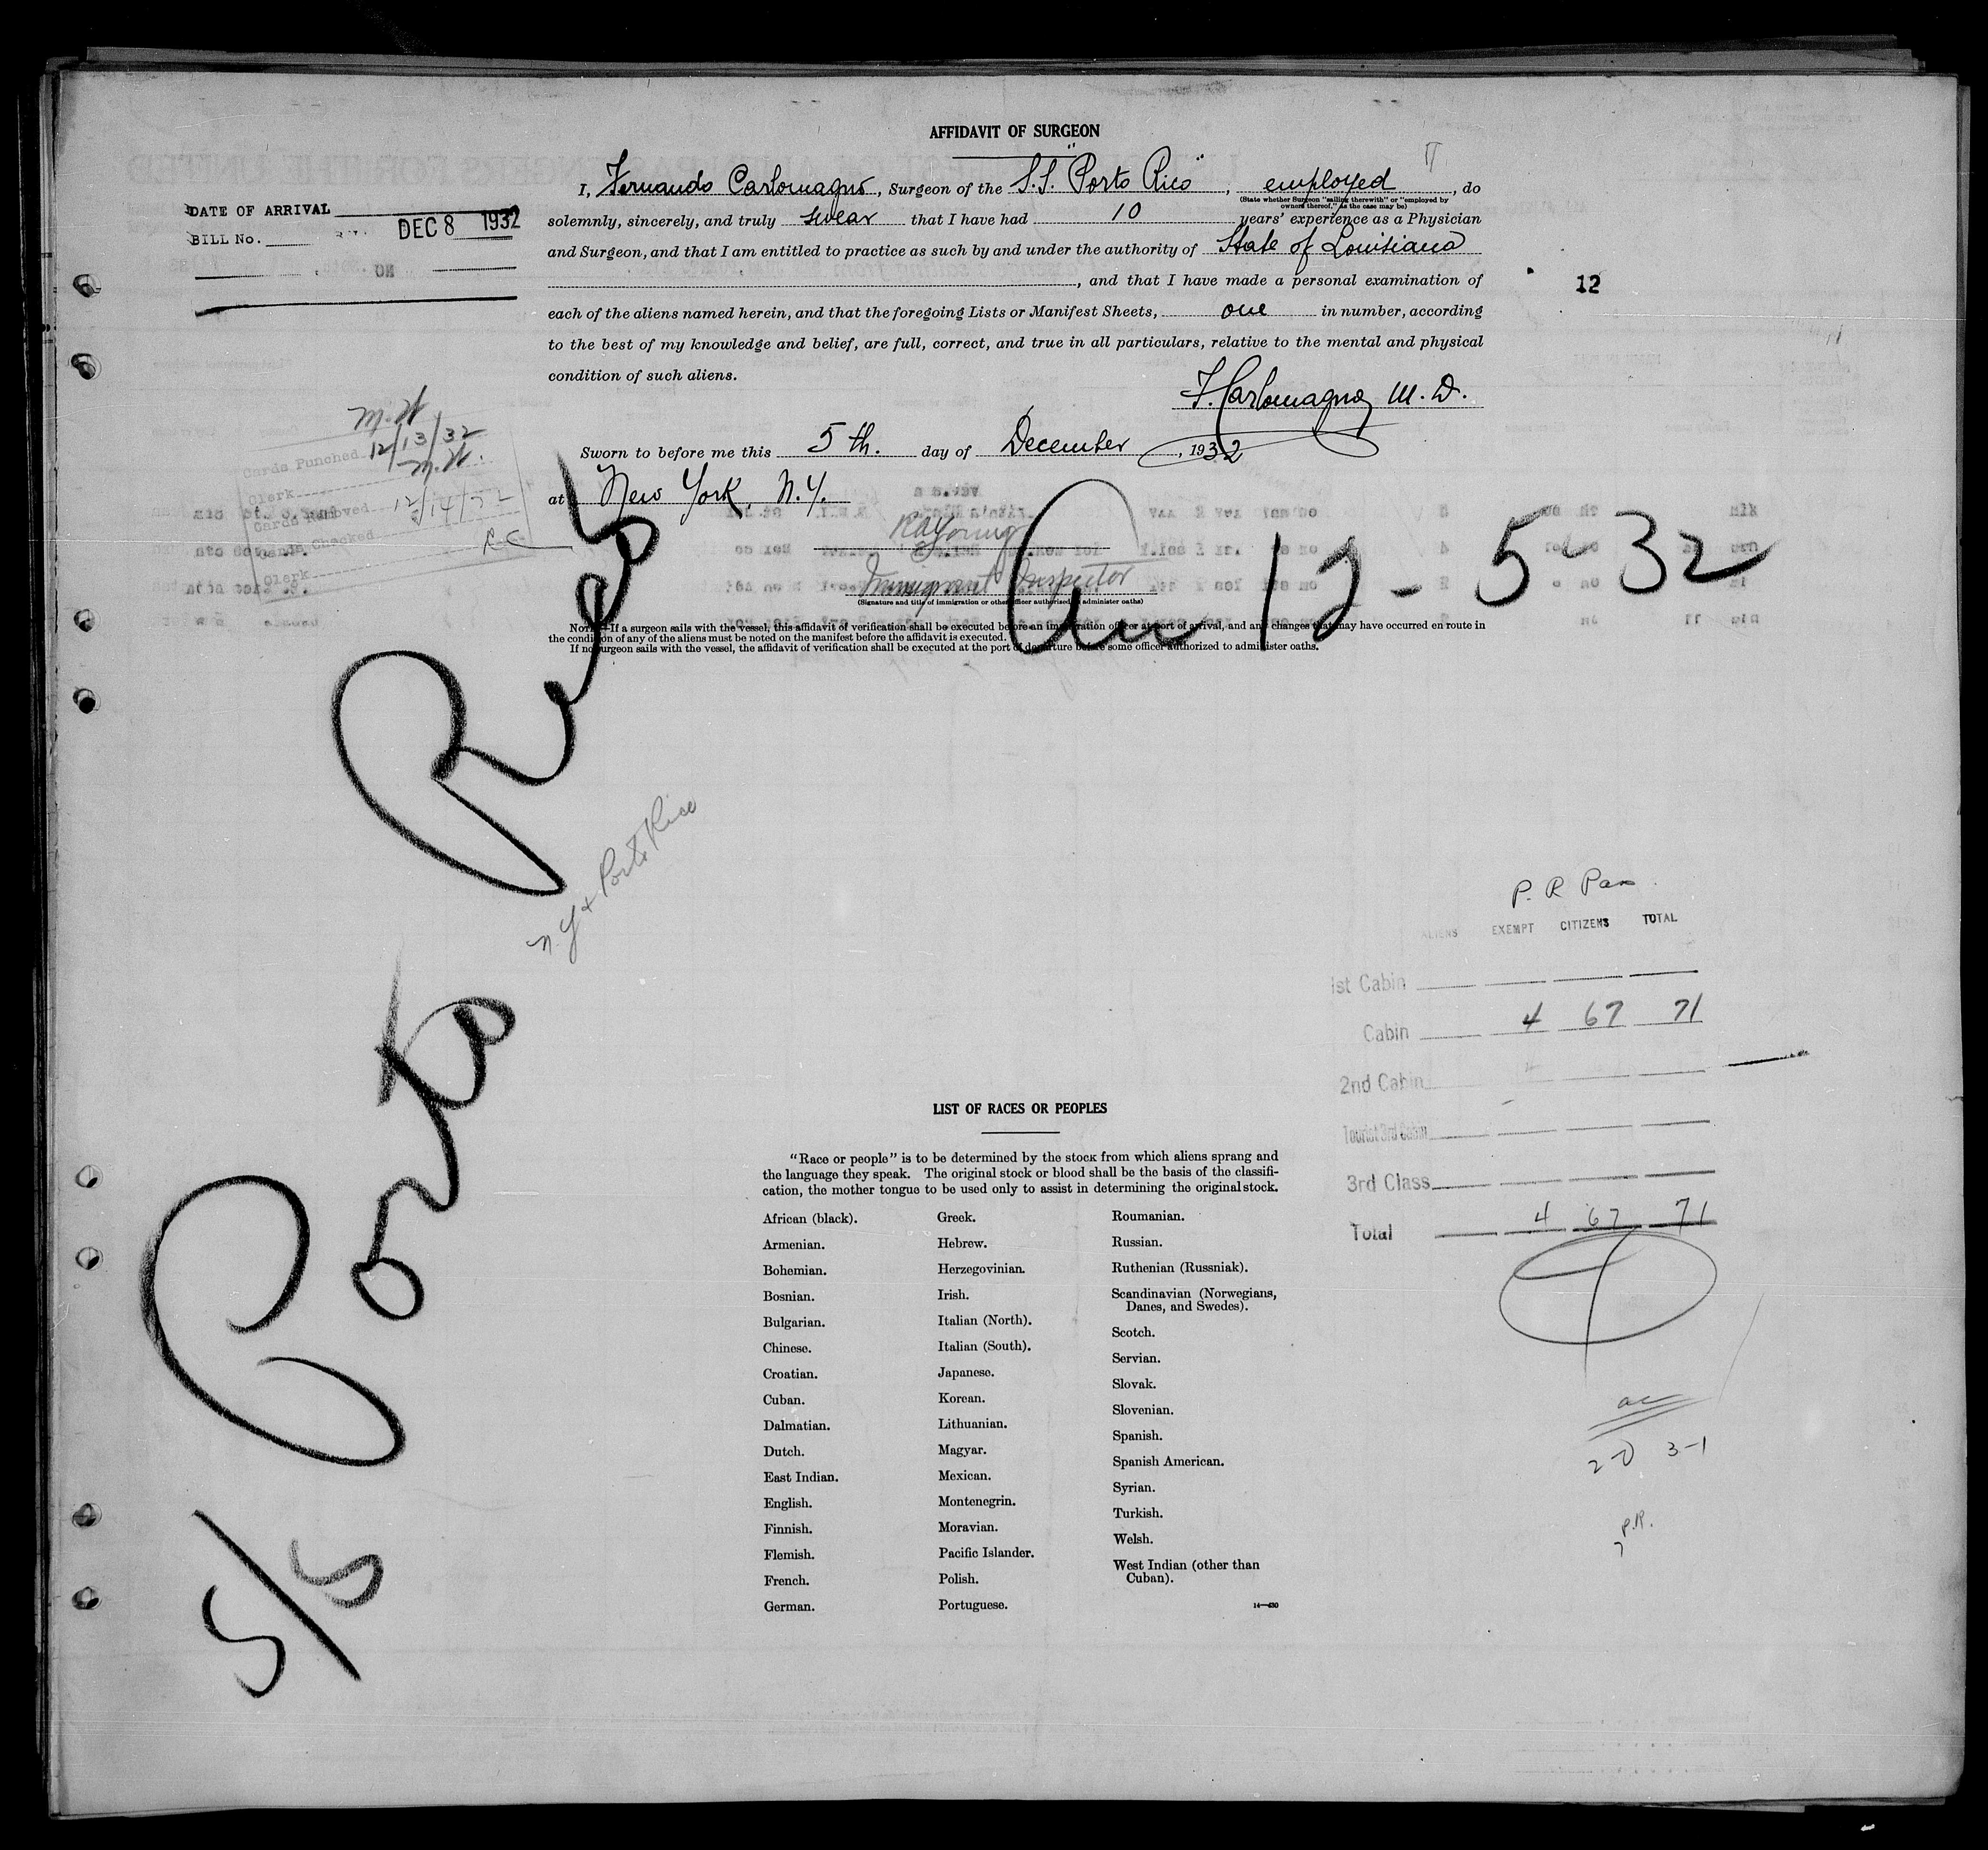 AFFIDAVIT OF SURGEON
I, Fernando Carlomagno, Surgeon of the S.S. "Porto Rico", employed, do
(State whether Surgeon "sailing therewith" or "employed by
owners thereof," as the case may be)
solemnly, sincerely, and truly swear that I have had 10 years' experience as a Physician
and Surgeon, and that I am entitled to practice as such by and under the authority of State of Louisiana
, and that I have made a personal examination of
each of the aliens named herein, and that the foregoing Lists or Manifest Sheets, one in number, according
to the best of my knowledge and belief, are full, correct, and true in all particulars, relative to the mental and physical
condition of such aliens.
F. Carlomagno, M. D.
Sworn to before me this 5th. day of December, 1932
at New York, N.Y.
RAYoung
Immigrant Inspector
(Signature and title of immigration or other officer authorized to administer oaths)
NOTE.—If a surgeon sails with the vessel, this affidavit of verification shall be executed before an immigration officer at port of arrival, and any changes that may have occurred en route in
the condition of any of the aliens must be noted on the manifest before the affidavit is executed.
If no surgeon sails with the vessel, the affidavit of verification shall be executed at the port of departure before some officer authorized to administer oaths.
DATE OF ARRIVAL
DEC 8 1932
BILL No.
12
M.H
Cards Punched 12/13/32
Clerk M.H.
Cards Removed 12/14/32
Checked
Clerk RC
Arr 12-5-32
S/S Porto Rico
N.Y & Porto Rico
P. R Pas
ALIENS EXEMPT CITIZENS TOTAL
1st Cabin
Cabin 4 67 71
2nd Cabin
Tourist 3rd Cabin
3rd Class
Total 4 67 71
ac
2-0 3-1
P.R.
7
LIST OF RACES OR PEOPLES
"Race or people" is to be determined by the stock from which aliens sprang and
the language they speak. The original stock or blood shall be the basis of the classifi-
cation, the mother tongue to be used only to assist in determining the original stock.
African (black).
Armenian.
Bohemian.
Bosnian.
Bulgarian.
Chinese.
Croatian.
Cuban.
Dalmatian.
Dutch.
East Indian.
English.
Finnish.
Flemish.
French.
German.
Greek.
Hebrew.
Herzegovinian.
Irish.
Italian (North).
Italian (South).
Japanese.
Korean.
Lithuanian.
Magyar.
Mexican.
Montenegrin.
Moravian.
Pacific Islander.
Polish.
Portuguese.
Roumanian.
Russian.
Ruthenian (Russniak).
Scandinavian (Norwegians,
Danes, and Swedes).
Scotch.
Servian.
Slovak.
Slovenian.
Spanish.
Spanish American.
Syrian.
Turkish.
Welsh.
West Indian (other than
Cuban).
14—430